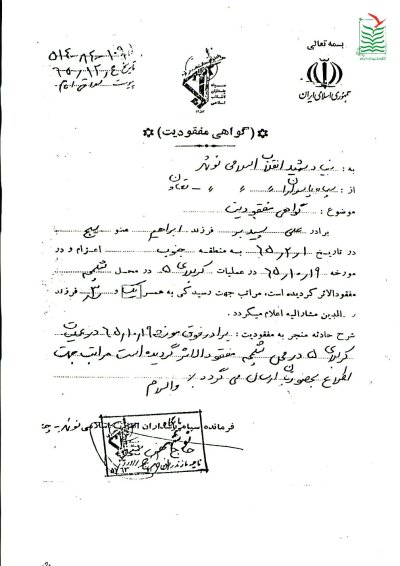 بسمه تعالی
جمهوری اسلامی ایران
سپاه پاسداران انقلاب اسلامی
(گواهی مفقودیت)
به: بنیاد شهید انقلاب اسلامی نوشهر
از: سپاه پاسداران " " - تعاون
موضوع: گواهی مفقودیت
برادر علی فرزند ابراهیم عضو بسیج
در تاریخ ۶۵/۲/۱ به منطقه جنوب اعزام و در
مورخه ۶۵/۱۰/۱۹ در عملیات کربلای ۵ در محل شلمچه
مفقودالاثر گردیده است، مراتب جهت رسیدگی به همسر یک و فرزند
والدین مشارالیه اعلام میگردد.
شرح حادثه منجر به مفقودیت: برادر فوق مورخ ۶۵/۱۰/۱۹ در عملیات
کربلای ۵ در محل شلمچه مفقودالاثر گردیده است مراتب جهت
اطلاع بحضورتان ارسال می گردد % والسلام
فرمانده سپاه پاسداران انقلاب اسلامی نوشهر